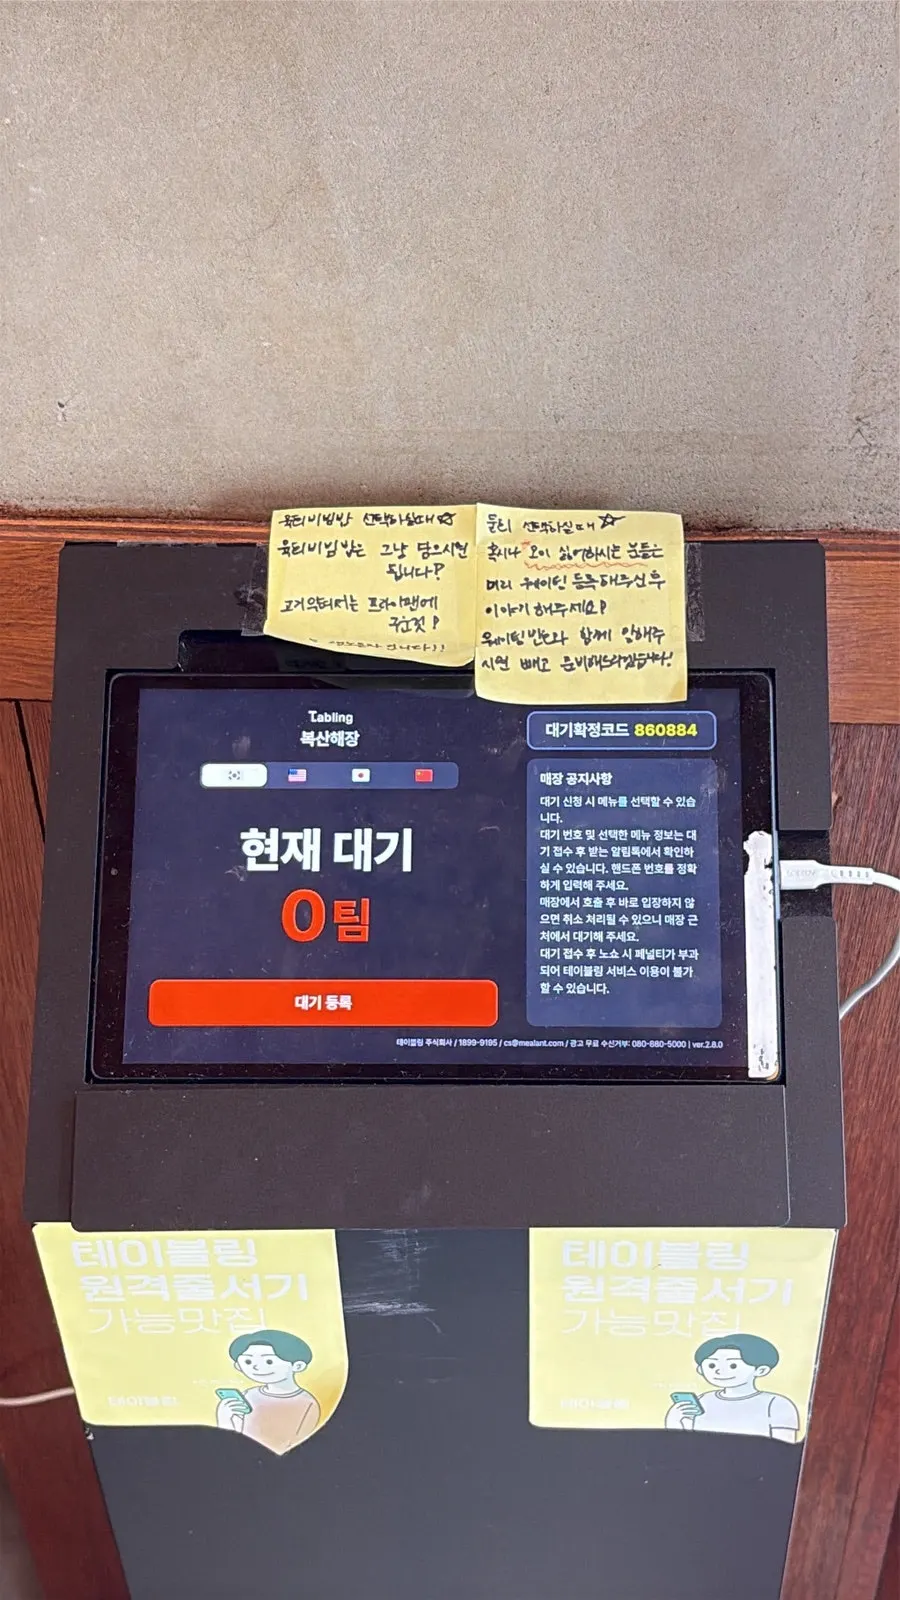 육티비빔밥 선택하실때☆
육티비빔밥은 그냥 담으시면
됩니다?
고기 익터서는 프라이팬에
입니다!!
물티 선택하실때☆
혹시나 오이 싫어하시는 분들은
미리 웨이팅 등록해주신후
이야기 해주세요?
웨이팅번호와 함께 말해주
시면 빼고 준비해드리겠습니다!
Tabling
복산해장
현재 대기
0팀
대기 등록
대기확정코드 860884
매장 공지사항
대기 신청 시 메뉴를 선택할 수 있습
니다.
대기 번호 및 선택한 메뉴 정보는 대
기 접수 후 받는 알림톡에서 확인하
실 수 있습니다. 핸드폰 번호를 정확
하게 입력해 주세요.
매장에서 호출 후 바로 입장하지 않
으면 취소 처리될 수 있으니 매장 근
처에서 대기해 주세요.
대기 접수 후 노쇼 시 페널티가 부과
되어 테이블링 서비스 이용이 불가
할 수 있습니다.
테이블링 주식회사 / 1899-9195 / cs@mealant.com / 광고 무료 수신거부: 080-880-5000 | ver.2.8.0
테이블링
원격줄서기
가능맛집
테이블링
테이블링
원격줄서기
가능맛집
테이블링